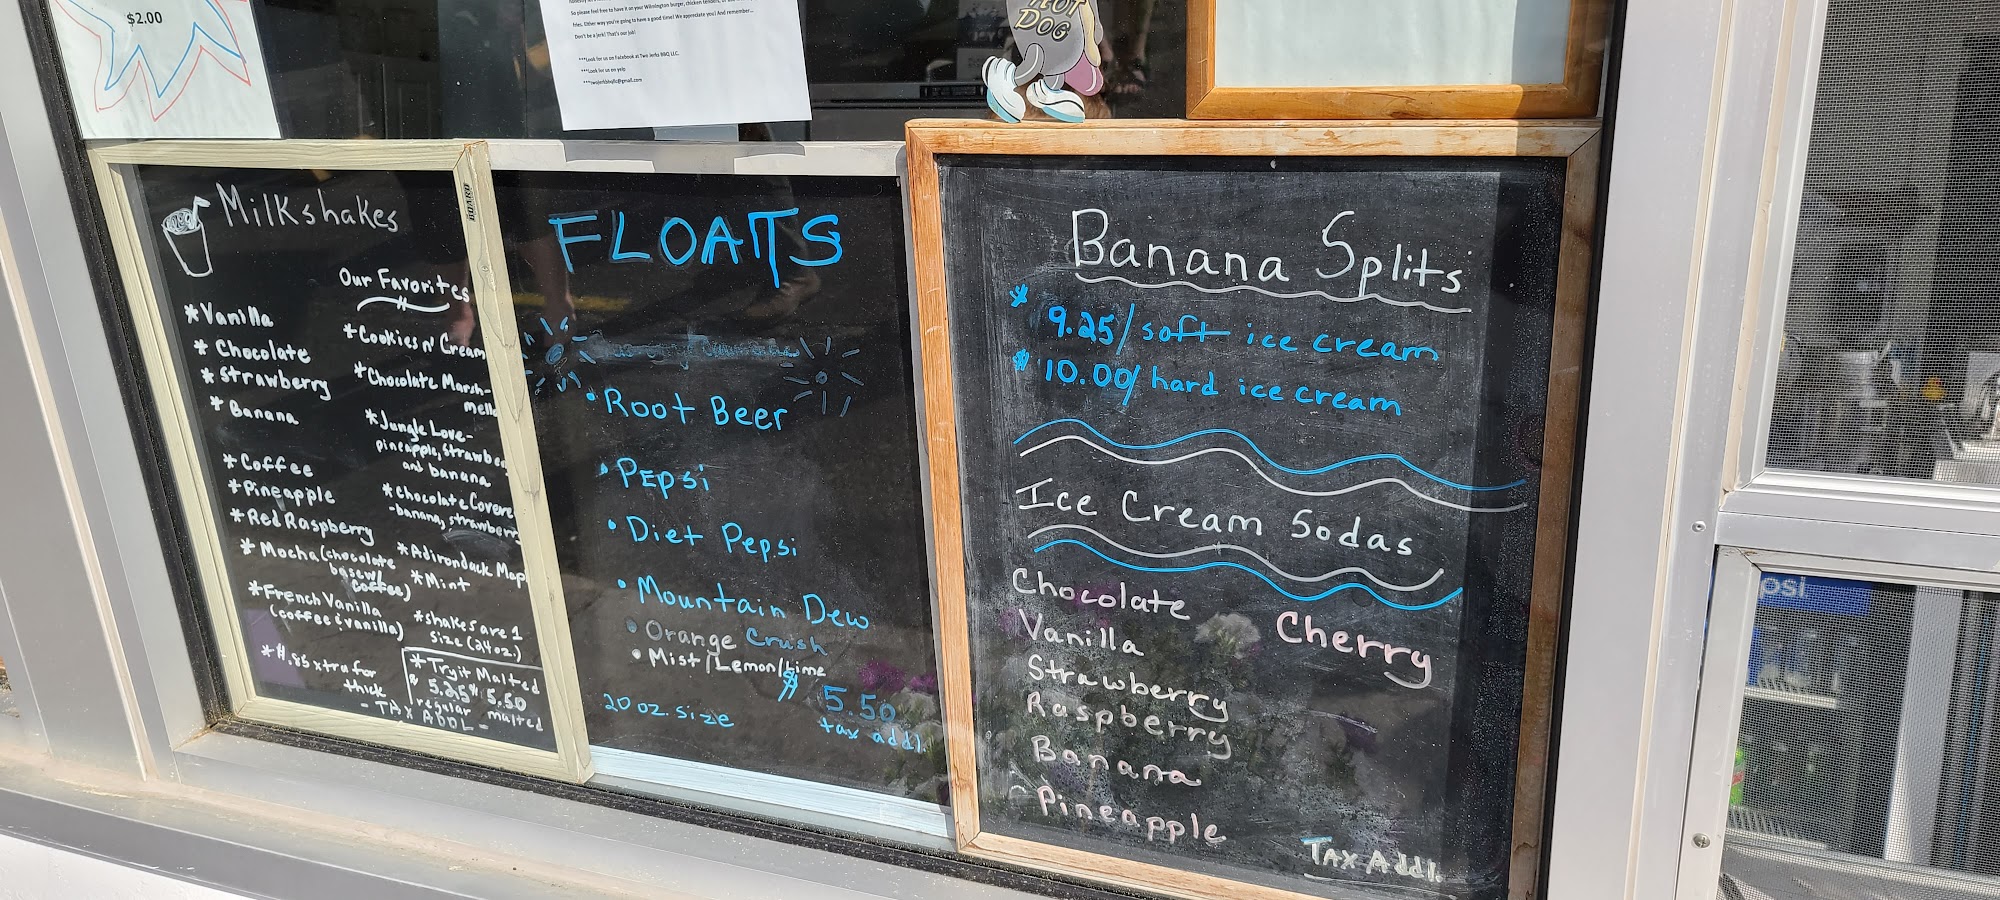 $2.00
So please feel free to have it on your Wilmington burger, chicken tenders,
fries. Either way you're going to have a good time! We appreciate you! And remember...
Don't be a jerk! That's our job!
***Look for us on Facebook at Two Jerks BBQ LLC.
***Look for us on yelp
HOT
DOG
BOARD
Milkshakes
* Vanilla
* Chocolate
* Strawberry
* Banana
* Coffee
* Pineapple
* Red Raspberry
* Mocha (chocolate
base w/
coffee)
* French Vanilla
(coffee & vanilla)
xtra for
thick
Our Favorites
* Cookies n' Cream
* Chocolate Marsh-
mello
* Jungle Love-
pineapple, strawber
and banana
* Chocolate Covere
-banana, strawberry
* Adirondack Map
* Mint
* shakes are 1
size (24 oz.)
* Try it Malted
$ 5.25 $ 5.50
regular malted
- TAX ADDL -
FLOATS
• Root Beer
• Pepsi
• Diet Pepsi
• Mountain Dew
• Orange Crush
• Mist/Lemon/Lime
20 oz. size
$ 5.50
tax addl.
Banana Splits
* 9.25/ soft ice cream
* 10.00/ hard ice cream
Ice Cream Sodas
Chocolate
Vanilla
Strawberry
Raspberry
Banana
Pineapple
Cherry
TAX Addl.
psi